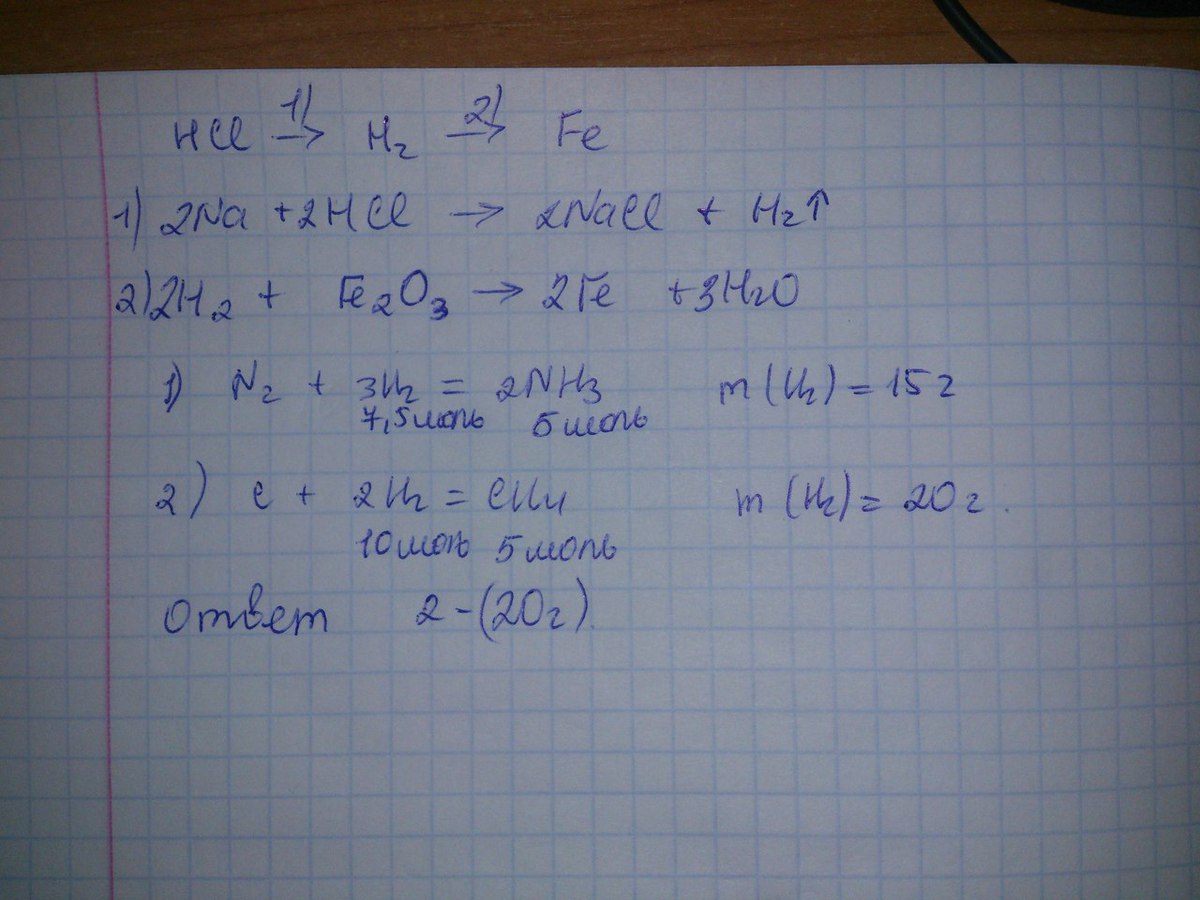 HCl 1)→ H₂ 2)→ Fe
1) 2Na + 2HCl → 2NaCl + H₂↑
2) 2H₂ + Fe₂O₃ → 2Fe + 3H₂O
1) N₂ + 3H₂ = 2NH₃ m(H₂) = 15г
7,5моль 5моль
2) C + 2H₂ = CH₄ m(H₂) = 20г.
10моль 5моль
Ответ 2-(20г).